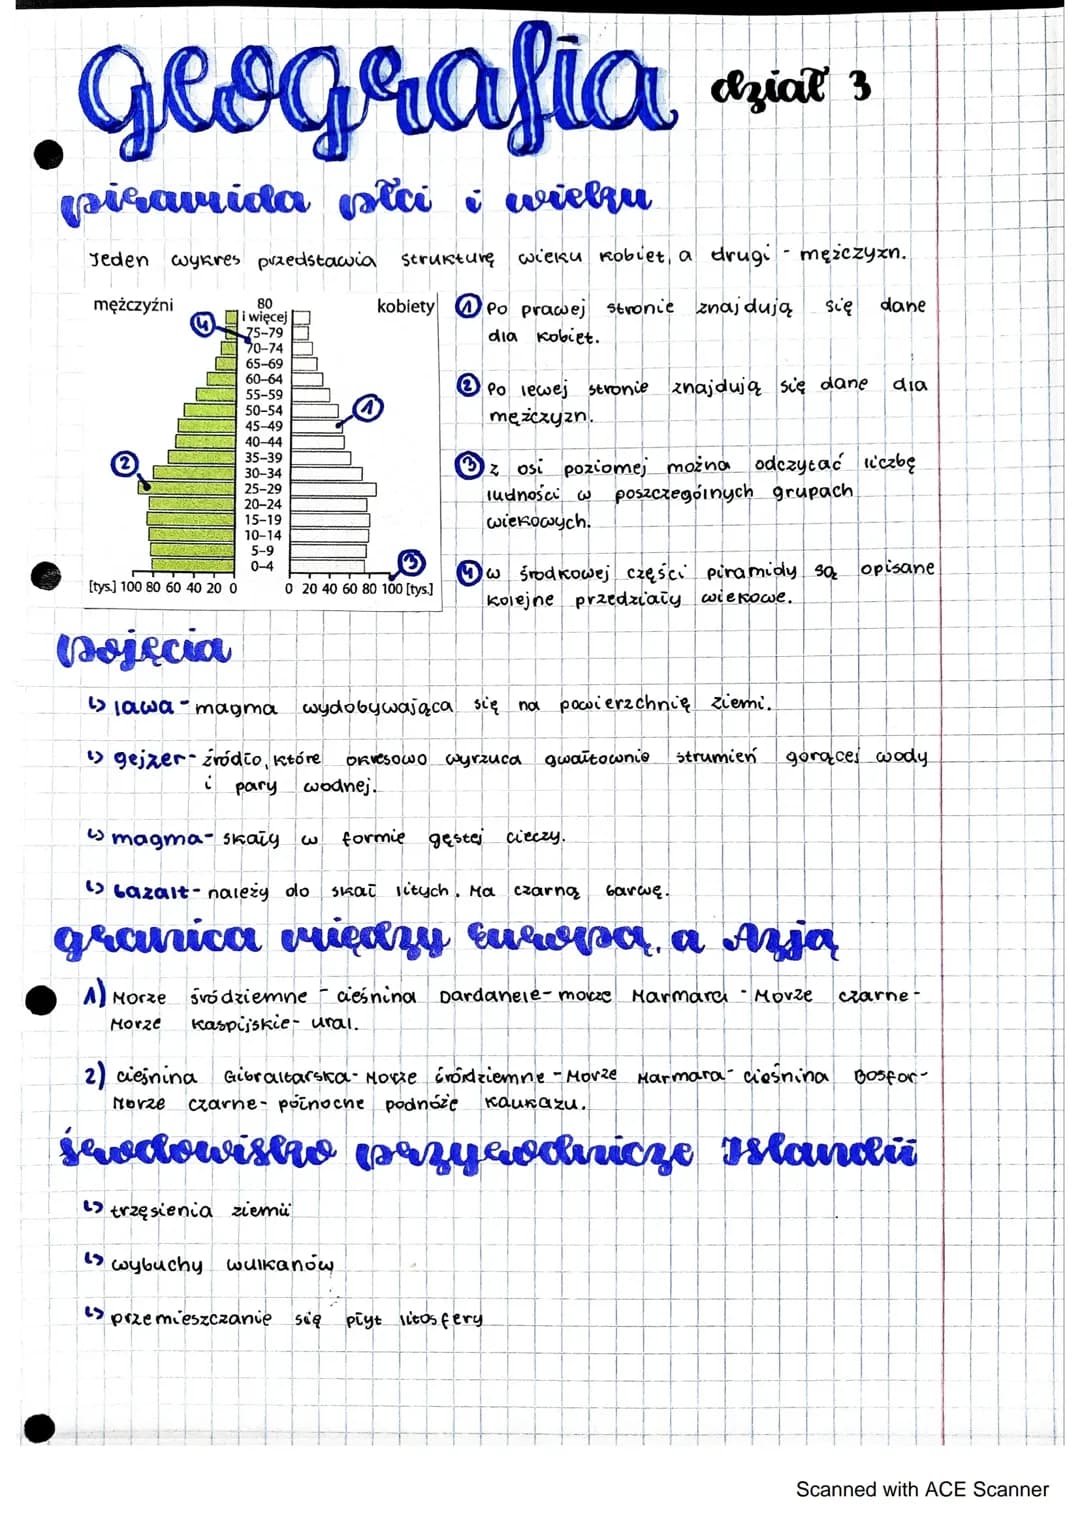 geografia dział 3
piramida płci i wieku
Jeden wykres przedstawia strukturę wieku kobiet, a drugi - mężczyzn.
mężczyźni
80
i więcej
75–79
70–74
65–69
60–64
55–59
50–54
45–49
40–44
35–39
30–34
25–29
20–24
15–19
10–14
5–9
0–4
kobiety
4
1
2
3
[tys.] 100 80 60 40 20 0
0 20 40 60 80 100 [tys.]
1 Po prawej stronie znajdują się dane
dla kobiet.
2 Po lewej stronie znajdują się dane dla
mężczyzn.
3 z osi poziomej można odczytać liczbę
ludności w poszczególnych grupach
wiekowych.
4 w środkowej części piramidy są opisane
kolejne przedziały wiekowe.
pojęcia
↳ lawa - magma wydobywająca się na powierzchnię ziemi.
↳ gejzer - źródło, które okresowo wyrzuca gwałtownie strumień gorącej wody
i pary wodnej.
↳ magma - skały w formie gęstej cieczy.
↳ bazalt - należy do skał litych. Ma czarną barwę.
granica między Europą, a Azją
1) Morze śródziemne - cieśnina Dardanele - morze Marmara - Morze czarne -
Morze Kaspijskie - ural.
2) cieśnina Gibraltarska - Morze śródziemne - Morze Marmara - cieśnina Bosfor -
Morze czarne - północne podnóże kaukazu.
środowisko przyrodnicze Islandii
↳ trzęsienia ziemii
↳ wybuchy wulkanów
↳ przemieszczanie się płyt litosfery
Scanned with ACE Scanner